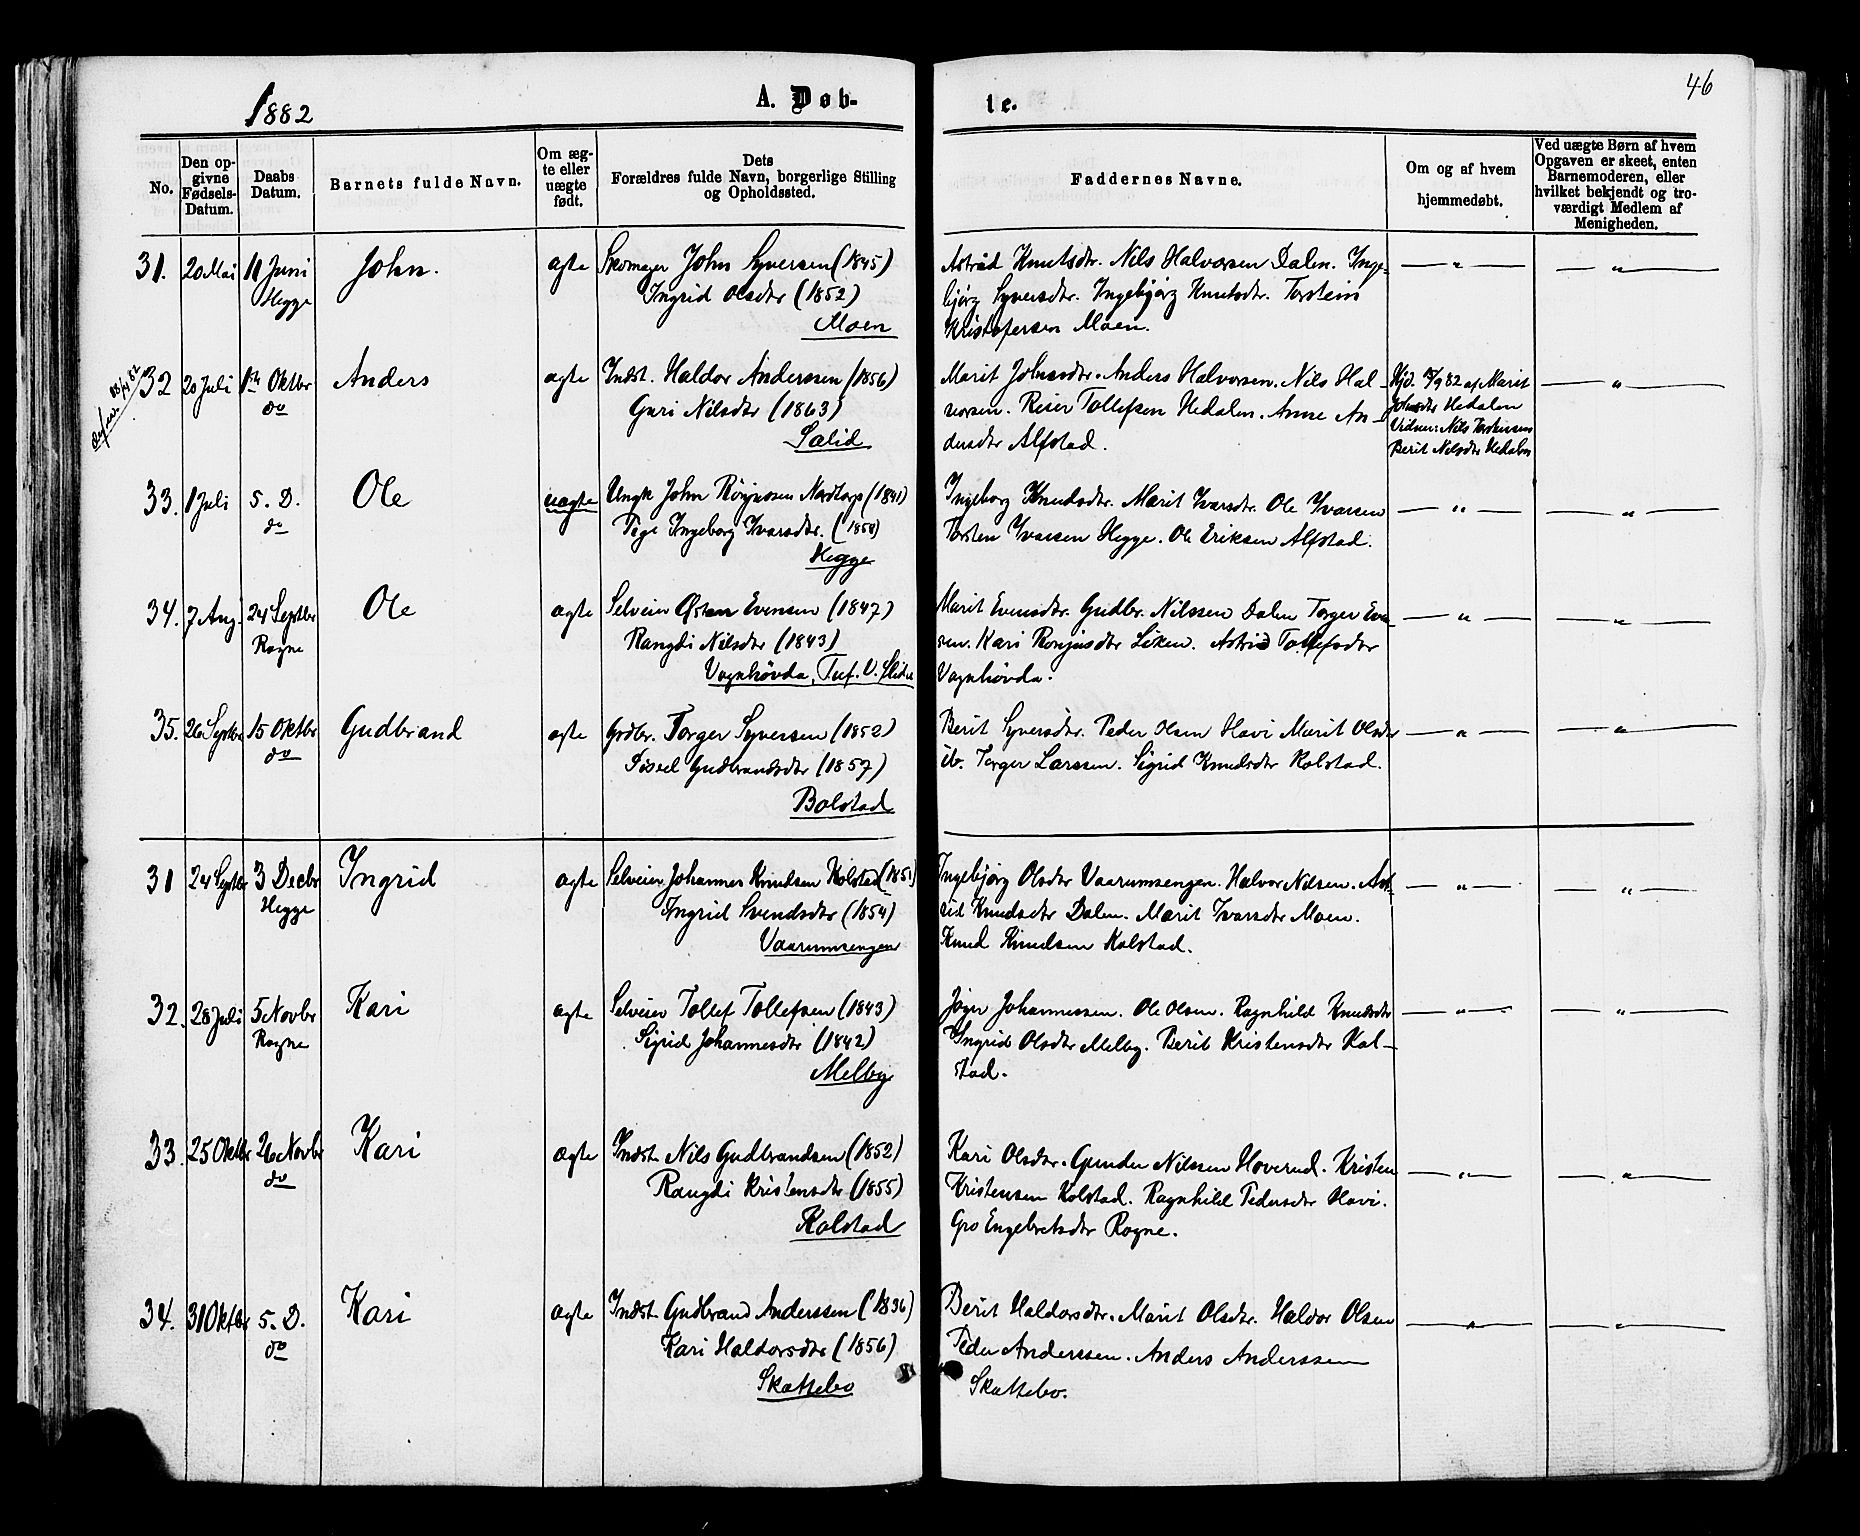 46
1882
A. Døb-
te.
No.
Den op-
givne
Fødsels-
Datum.
Daabs
Datum.
Barnets fulde Navn.
Om æg-
te eller
uægte
født.
Dets
Forældres fulde Navn, borgerlige Stilling
og Opholdssted.
Faddernes Navne.
Om og af hvem
hjemmedøbt.
Ved uægte Børn af hvem
Opgaven er skeet, enten
Barnemoderen, eller
hvilket bekjendt og tro-
værdigt Medlem af
Menigheden.
31. 20 Mai 11 Juni John. ægte Skomager John Syversen (1845)
Hegge Ingrid Olsdtr (1852)
Moen
Astrid Knutsdtr. Nils Halvorsen Dalen. Inge-
bjørg Syversdtr. Ingebjørg Knutsdtr. Torstein
Kristofersen Moen.
32 20 Juli Oktbr Anders ægte Indst. Haldor Anderssen (1856)
do Guri Nilsdtr (1863)
Sælid
Marit Johnsdtr. Anders Halvorsen. Nils Hal-
vorsen. Reier Tollefsen Hedalen. Anne An-
dersdtr Alfstad.
Hjd. 82 af Marit
Johnsdtr Hedalen
Vidner: Nils Torstensen
Berit Nilsdtr Hedalen
33. 1 Juli 5. D. Ole uægte Ungk John Nordtorp (1841)
do Pige Ingeborg Ivarsdtr. (1858)
Hegge
Ingeborg Knudsdtr. Marit Ivarsdtr. Ole Ivarsen
Torsten Ivarsen Hegge. Ole Eriksen Alfstad.
34. 7 Aug. 24 Septbr Ole ægte Selveier Østen Evensen (1847)
Rogne Rangdi Nilsdtr (1843)
Vognhøvda, V. Slidre
Marit Evensdtr. Gudbr. Nilssen Dalen Torger Even-
sen. Kari Ronjusdtr Liken. Astrid Tollefsdtr
Vognhøvda.
35. 26 Septbr 15 Oktbr Gudbrand ægte Grdbr. Torger Syversen (1852)
do Sissel Gudbrandsdtr (1857)
Bolstad
Berit Syversdtr. Peder Olsen Havi Marit Olsdtr
ib. Torger Larssen. Sigrid Knudsdtr Kolstad.
31 24 Septbr 3 Decbr Ingrid ægte Selveier Johannes Knudsen Kolstad (1851)
Hegge Ingrid Svendsdtr (1854)
Vaarumsengen
Ingebjørg Olsdtr Vaarumsengen. Halvor Nilsen. Ast-
rid Knudsdtr Dalen. Marit Ivarsdtr Moen.
Knud Knudsen Kolstad.
32. 28 Juli 5 Novbr Kari ægte Selveier Tollef Tollefsen (1843)
Rogne Sigrid Johannesdtr (1842)
Melby
Jøger Johannessen. Ole Olsen. Ragnhild Knudsdtr
Ingrid Olsdtr Melby. Berit Kristensdtr Kol-
stad.
33. 25 Oktbr 26 Novbr Kari ægte Indst. Nils Gudbrandsen (1852)
do Rangdi Kristensdtr (1855)
Kolstad
Kari Olsdtr. Gunder Nilssen Hoverud. Kristen
Kristensen Kolstad. Ragnhild Pedersdtr Havi.
Gro Engebretsdtr Rogne.
34. 31 Oktbr 5. D. Kari ægte Indst. Gudbrand Anderssen (1836)
do Kari Haldorsdtr (1856)
Skattebo
Berit Haldorsdtr. Marit Olsdtr. Haldor Olsen
Peder Anderssen. Anders Anderssen
Skattebo.